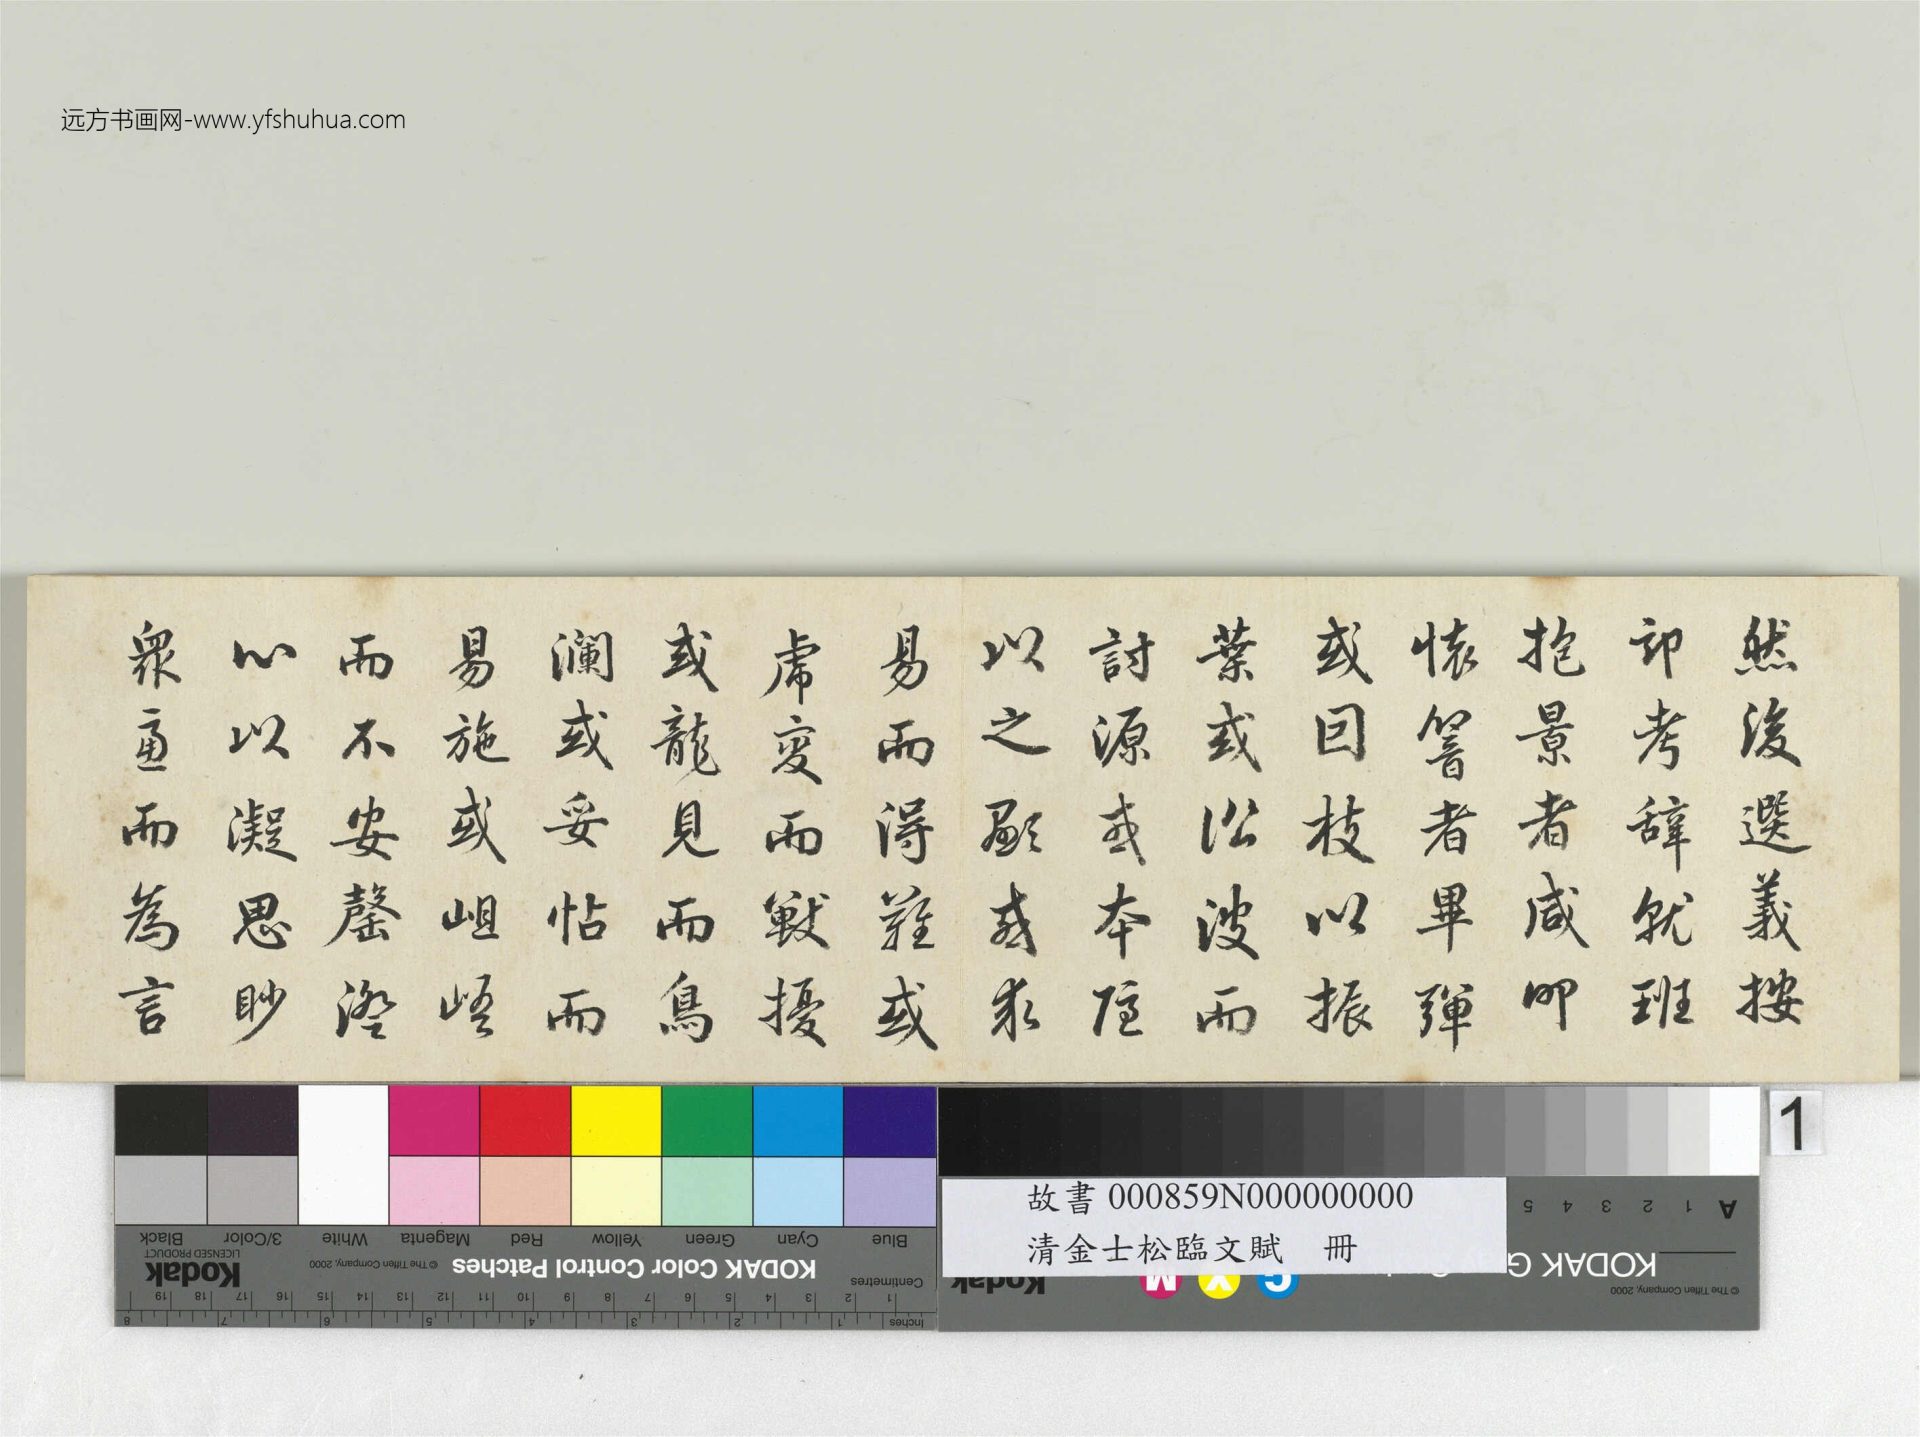 远方书画网-www.yfshuhua.com
然後選義按
部考辭就班
抱景者咸叩
懷響者畢彈
或因枝以振
葉或沿波而
討源或本隱
以之顯或求
易而得難或
虎變而獸擾
或龍見而鳥
瀾或妥帖而
易施或岨峿
而不安罄澄
心以凝思眇
衆慮而為言
1
故書 000859N000000000
清金士松臨文賦 冊
Blue Cyan Green Yellow Red Magenta White 3/Color Black
KODAK Color Control Patches
© The Tiffen Company, 2000
Kodak
LICENSED PRODUCT
Centimetres 1 2 3 4 5 6 7 8 9 10 11 12 13 14 15 16 17 18 19
Inches 1 2 3 4 5 6 7 8
A 1 2 3 4 5
KODAK G
© The Tiffen Company, 2000
C Y M
Kodak